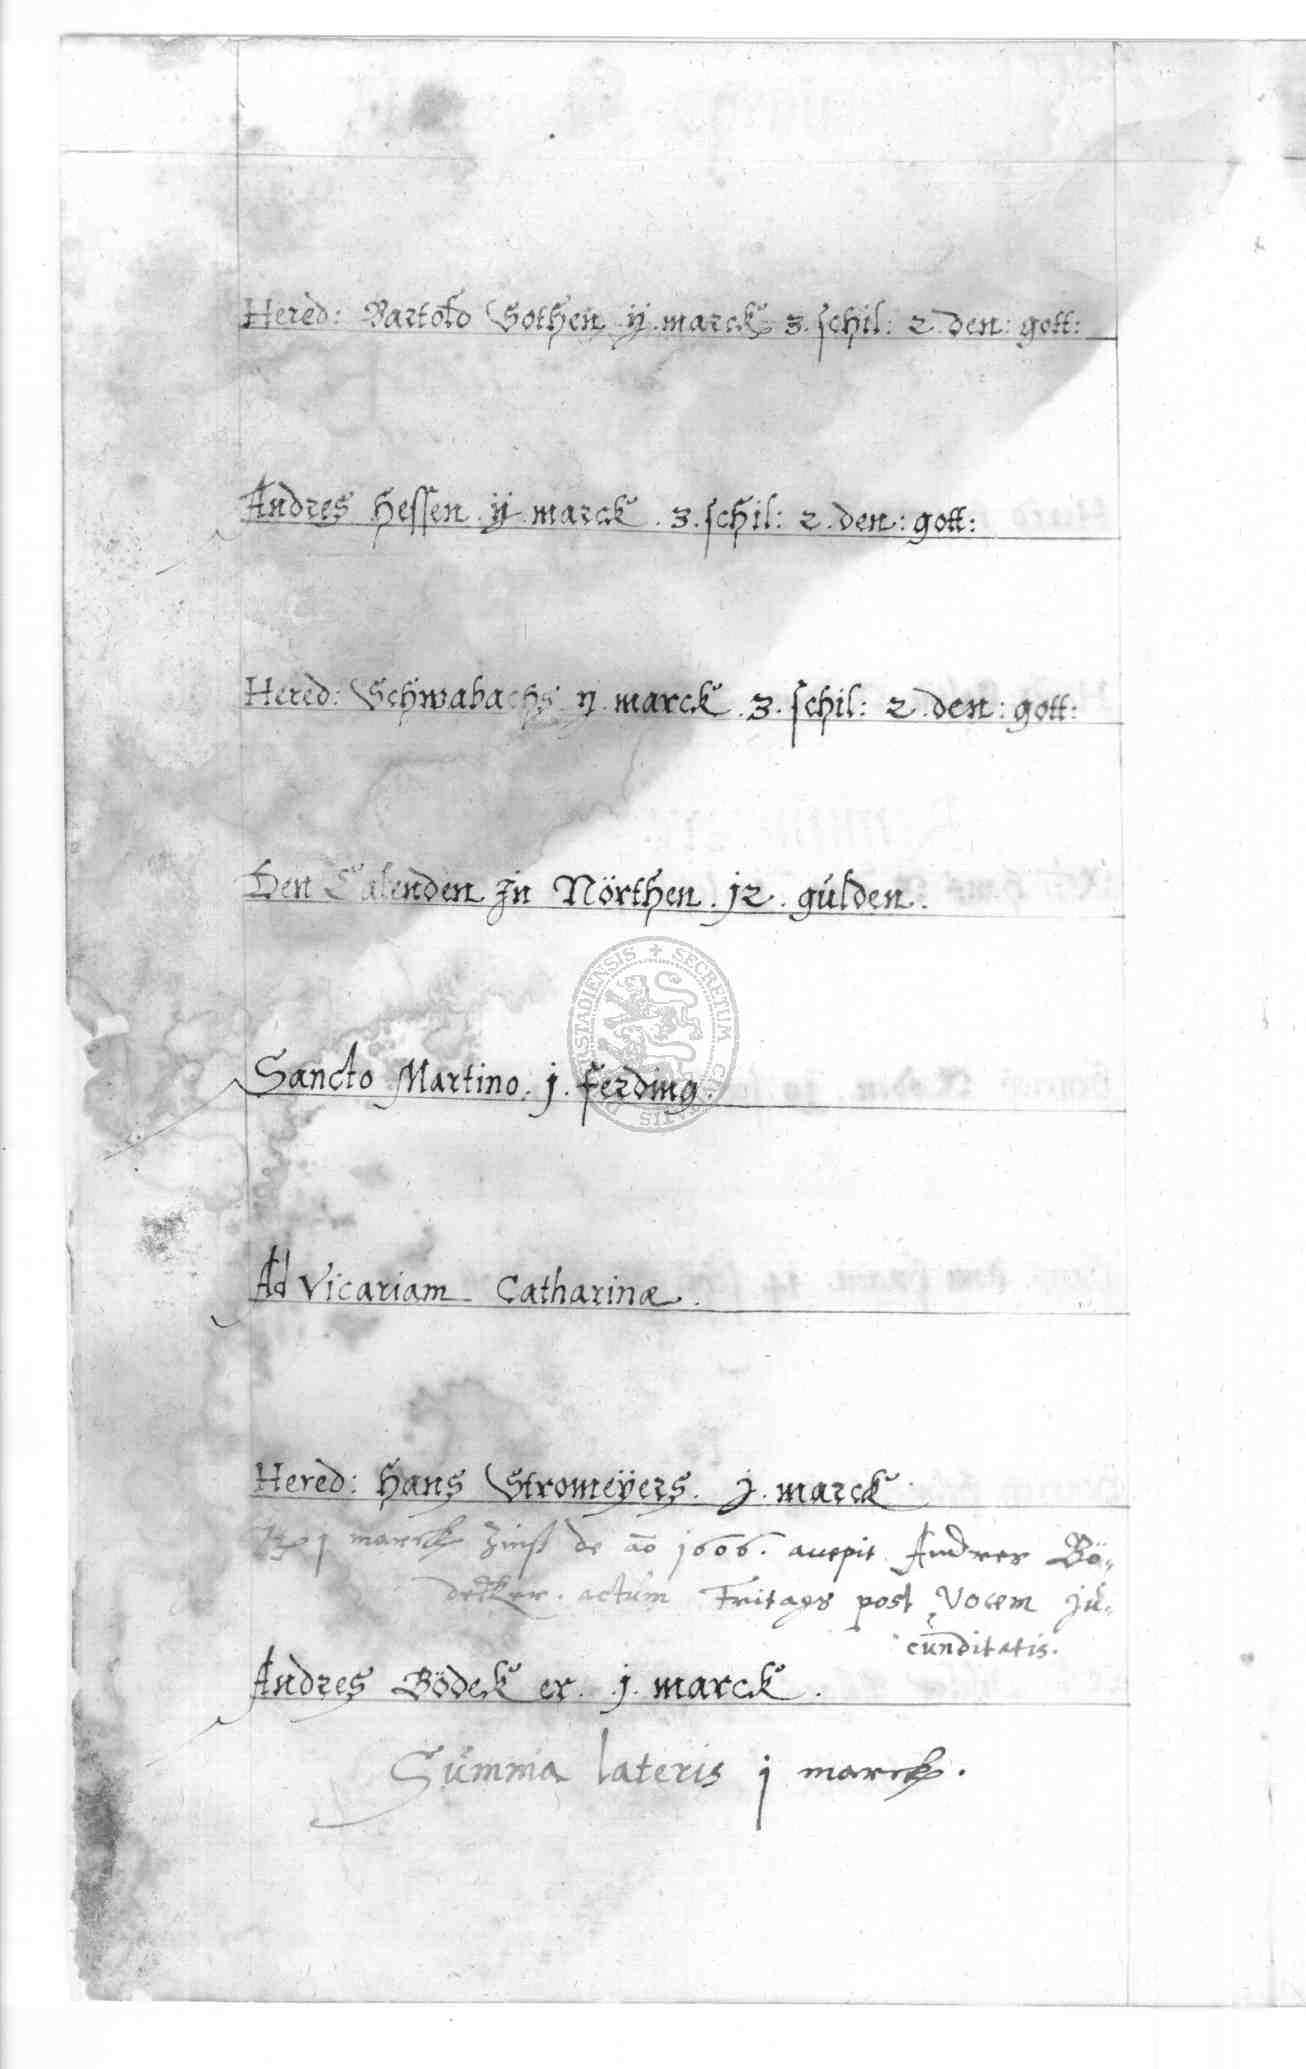 Hered: Bartold Gothen ij marck 3. schil: 2. den: gott:
Andres Hessen. ij. marck. 3. schil: 2. den: gott:
Hered: Schwabachs ij. marck. 3. schil: 2. den: gott:
Den Calenden Jn Nörthen. j2. gulden.
Sancto Martino. j. ferding.
Ad Vicariam Catharinæ.
Hered: Hans Stromeÿers. j. marck.
j marck Zinß de ao j606. accepit Andres Bö-
decker. actum Fritags post Vocem ju-
cunditatis.
Andres Bödeker. j. marck.
Summa lateris j marck.
SECRETUM